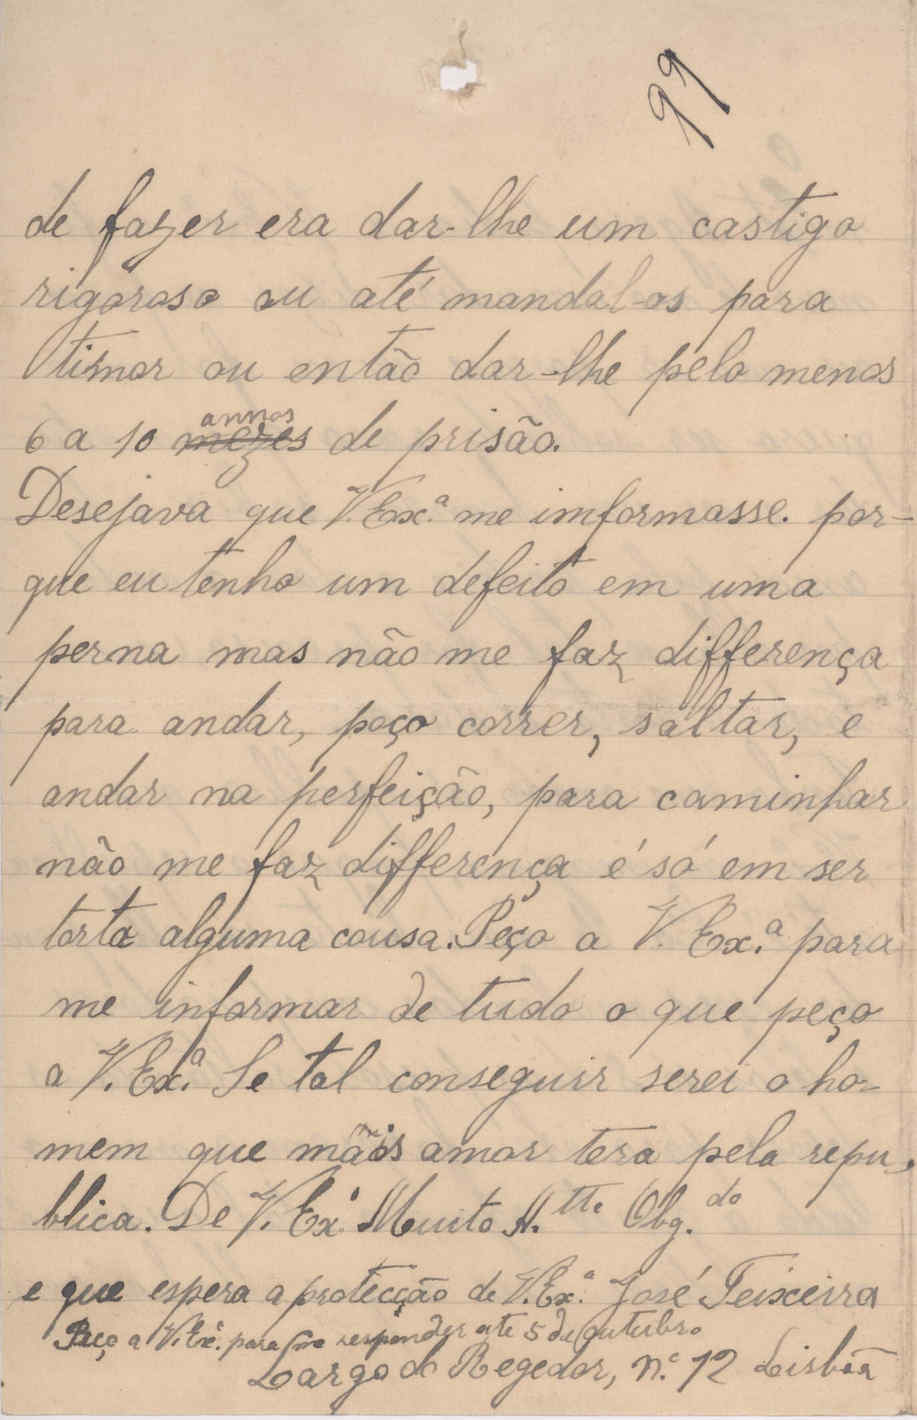 99
de fazer era dar-lhe um castigo
rigoroso ou até mandal-os para
timor ou então dar-lhe pelo menos
annos
6 a 10 mezes de prisão.
Desejava que V. Exª. me imformasse. por-
que eu tenho um defeito em uma
perna mas não me faz differença
para andar, poço correr, saltar, e
andar na perfeição, para caminhar
não me faz differença é só em ser
torta alguma cousa. Peço a V. Ex.ª para
me informar de tudo o que peço
a V. Ex.ª Se tal conseguir serei o ho-
mem que mais amor tera pela repu-
blica. De V. Exª Muito A.tte Obg.do
e que espera a protecção de V. Ex.ª José Teixeira
Peço a V. Ex.ª para me responder ate 5 de Outubro
Largo do Regedor, n.º 12 Lisboa